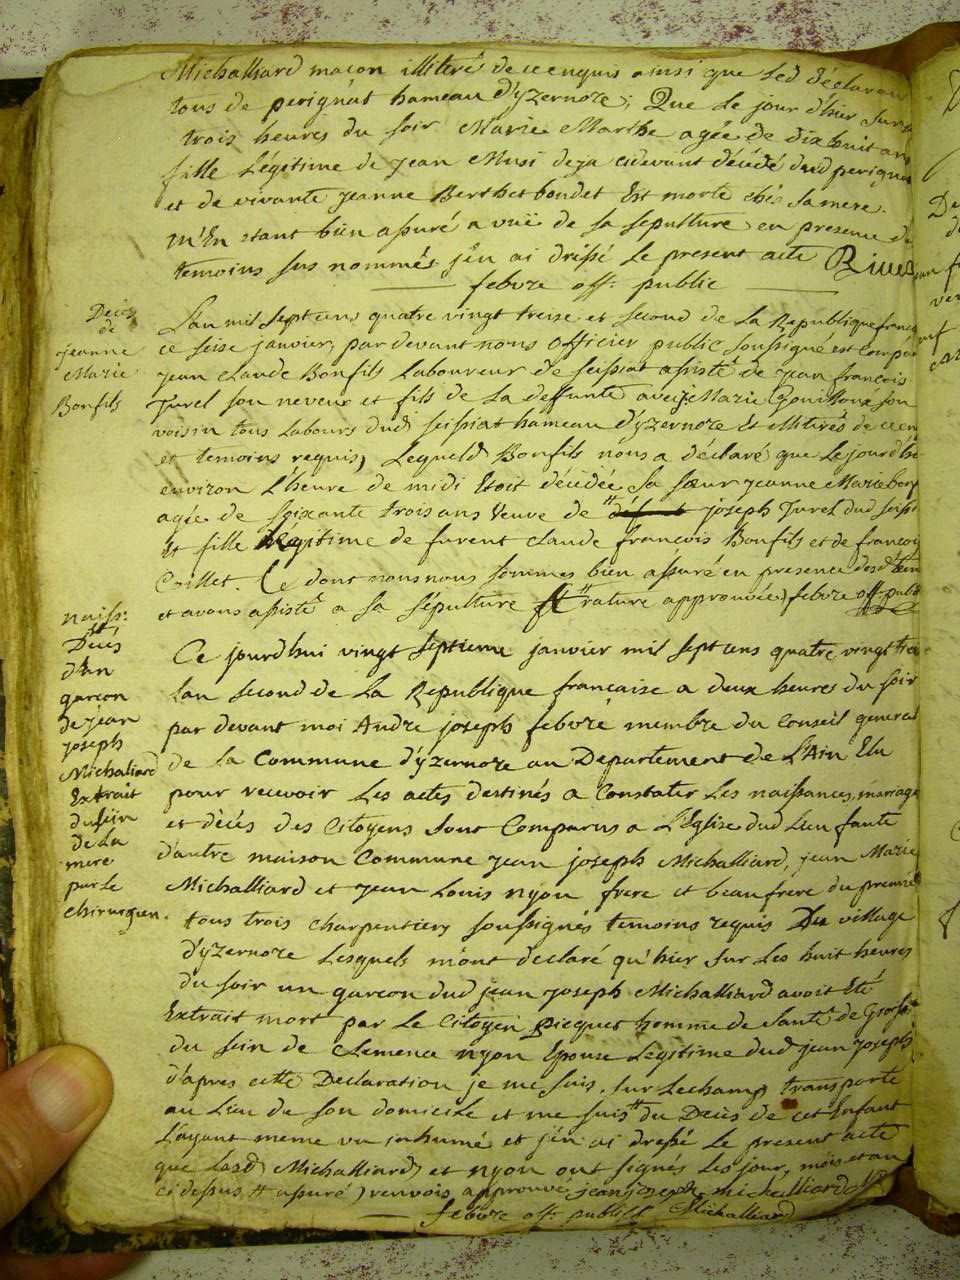 Michalliard macon illiteré de ce enquis ainsi que led déclarant
tous de perignat hameau d'yzernore; Que le jour d'hier sur
trois heures du soir Marie Marthe agée de dix huit ans
fille légitime de jean Musi deja cidevant décédé dud perignat
et de vivante jeanne Berthet bondet Est morte chés sa mere.
M'En etant bien assuré a vuë de sa sepulture en presence de
temoins sus nommés j'en ai dressé le present acte
febvre off. public
Décès
de
jeanne
Marie
Bonfils
L'an mil sept cens quatre vingt treise et second de la Republique franc
ce seise janvier, par devant nous officier public soussigné est comparu
jean claude Bonfils Laboureur de seissiat assisté de jean francois
Jurel son neveur et fils de la defunte avec Marie son
voisin tous Labours dud seissiat hameau d'yzernore Et illiterés de ce en
et temoins requis, Lequeld Bonfils nous a déclaré que le jourdhi
environ l'heure de midi Etoit décédée sa sœur jeanne Marie bonf
agée de soixante trois ans Veuve de joseph Jurel dud seissi
Et fille légitime de furent claude francois Bonfils et de francoi
Caillet. Ce dont nous nous sommes bien assuré en presence desd
et avons assisté a sa sépulture rature approuvée) febvre off. publ
naiss:
Décés
d'un
garcon
de jean
joseph
Michaliard
Extrait
du sein
de la
mere
par le
chirurgien.
Ce jourdhui vingt septieme janvier mil sept cens quatre vingt trei
lan second de la Republique francaise a deux heures du soir
par devant moi André joseph febvré membre du Conseil general
de la Commune d'yzernore au Departement de L'Ain Elu
pour recevoir Les actes destinés a Constater Les naissances, mariage
et décés des Citoyens sont Comparus a L'Eglise dud Lieu faute
d'autre maison Commune jean joseph Michalliard, jean Marie
Michalliard et jean Louis nyon frere et beaufrere du premier
tous trois charpentiers soussignés temoins requis Du village
d'yzernore Lesquels m'ont declaré qu'hier sur Les huit heures
du soir un garcon dud jean joseph Michalliard avoit Eté
Extrait mort par Le Citoyen picquet homme de santé de
du sein de clemence nyon Epouse Legitime dud jean joseph
d'apres cette Declaration je me suis sur Lechamp transporté
au Lieu de son domicile et me suis # du Décés de cet Enfant
L'ayant meme vu inhumé et j'en ai dressé Le present acte
que lesd Michalliard et nyon ont signés Les jour, mois et an
ci dessus # assuré) renvois approuvé, jean joseph michalliard
febvre off. public Michalliard